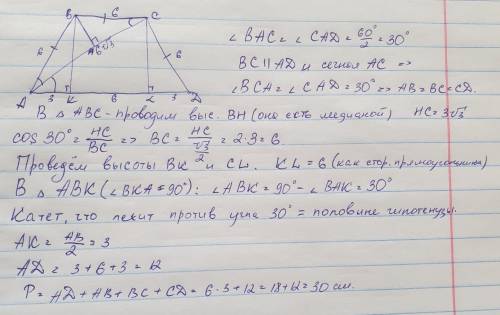 B 6 C
∠BAC = ∠CAD = 60°/2 = 30°
6 6√3 6
BC ∥ AD и секная AC ⇒
A 3 K 6 L 3 D
∠BCA = ∠CAD = 30° ⇒ AB = BC = CD.
В △ ABC - проводим выс. BH (она есть медианой) HC = 3√3
cos 30° = HC/BC ⇒ BC = HC/(√3/2) = 2·3 = 6.
Проведём высоты BK и CL. KL = 6 (как стор. прямоугольника)
В △ ABK (∠BKA = 90°): ∠ABK = 90° - ∠BAK = 30°
Катет, что лежит против угла 30° = половине гипотенузы.
AK = AB/2 = 3
AD = 3 + 6 + 3 = 12
P = AD + AB + BC + CD = 6·3 + 12 = 18 + 12 = 30 см.